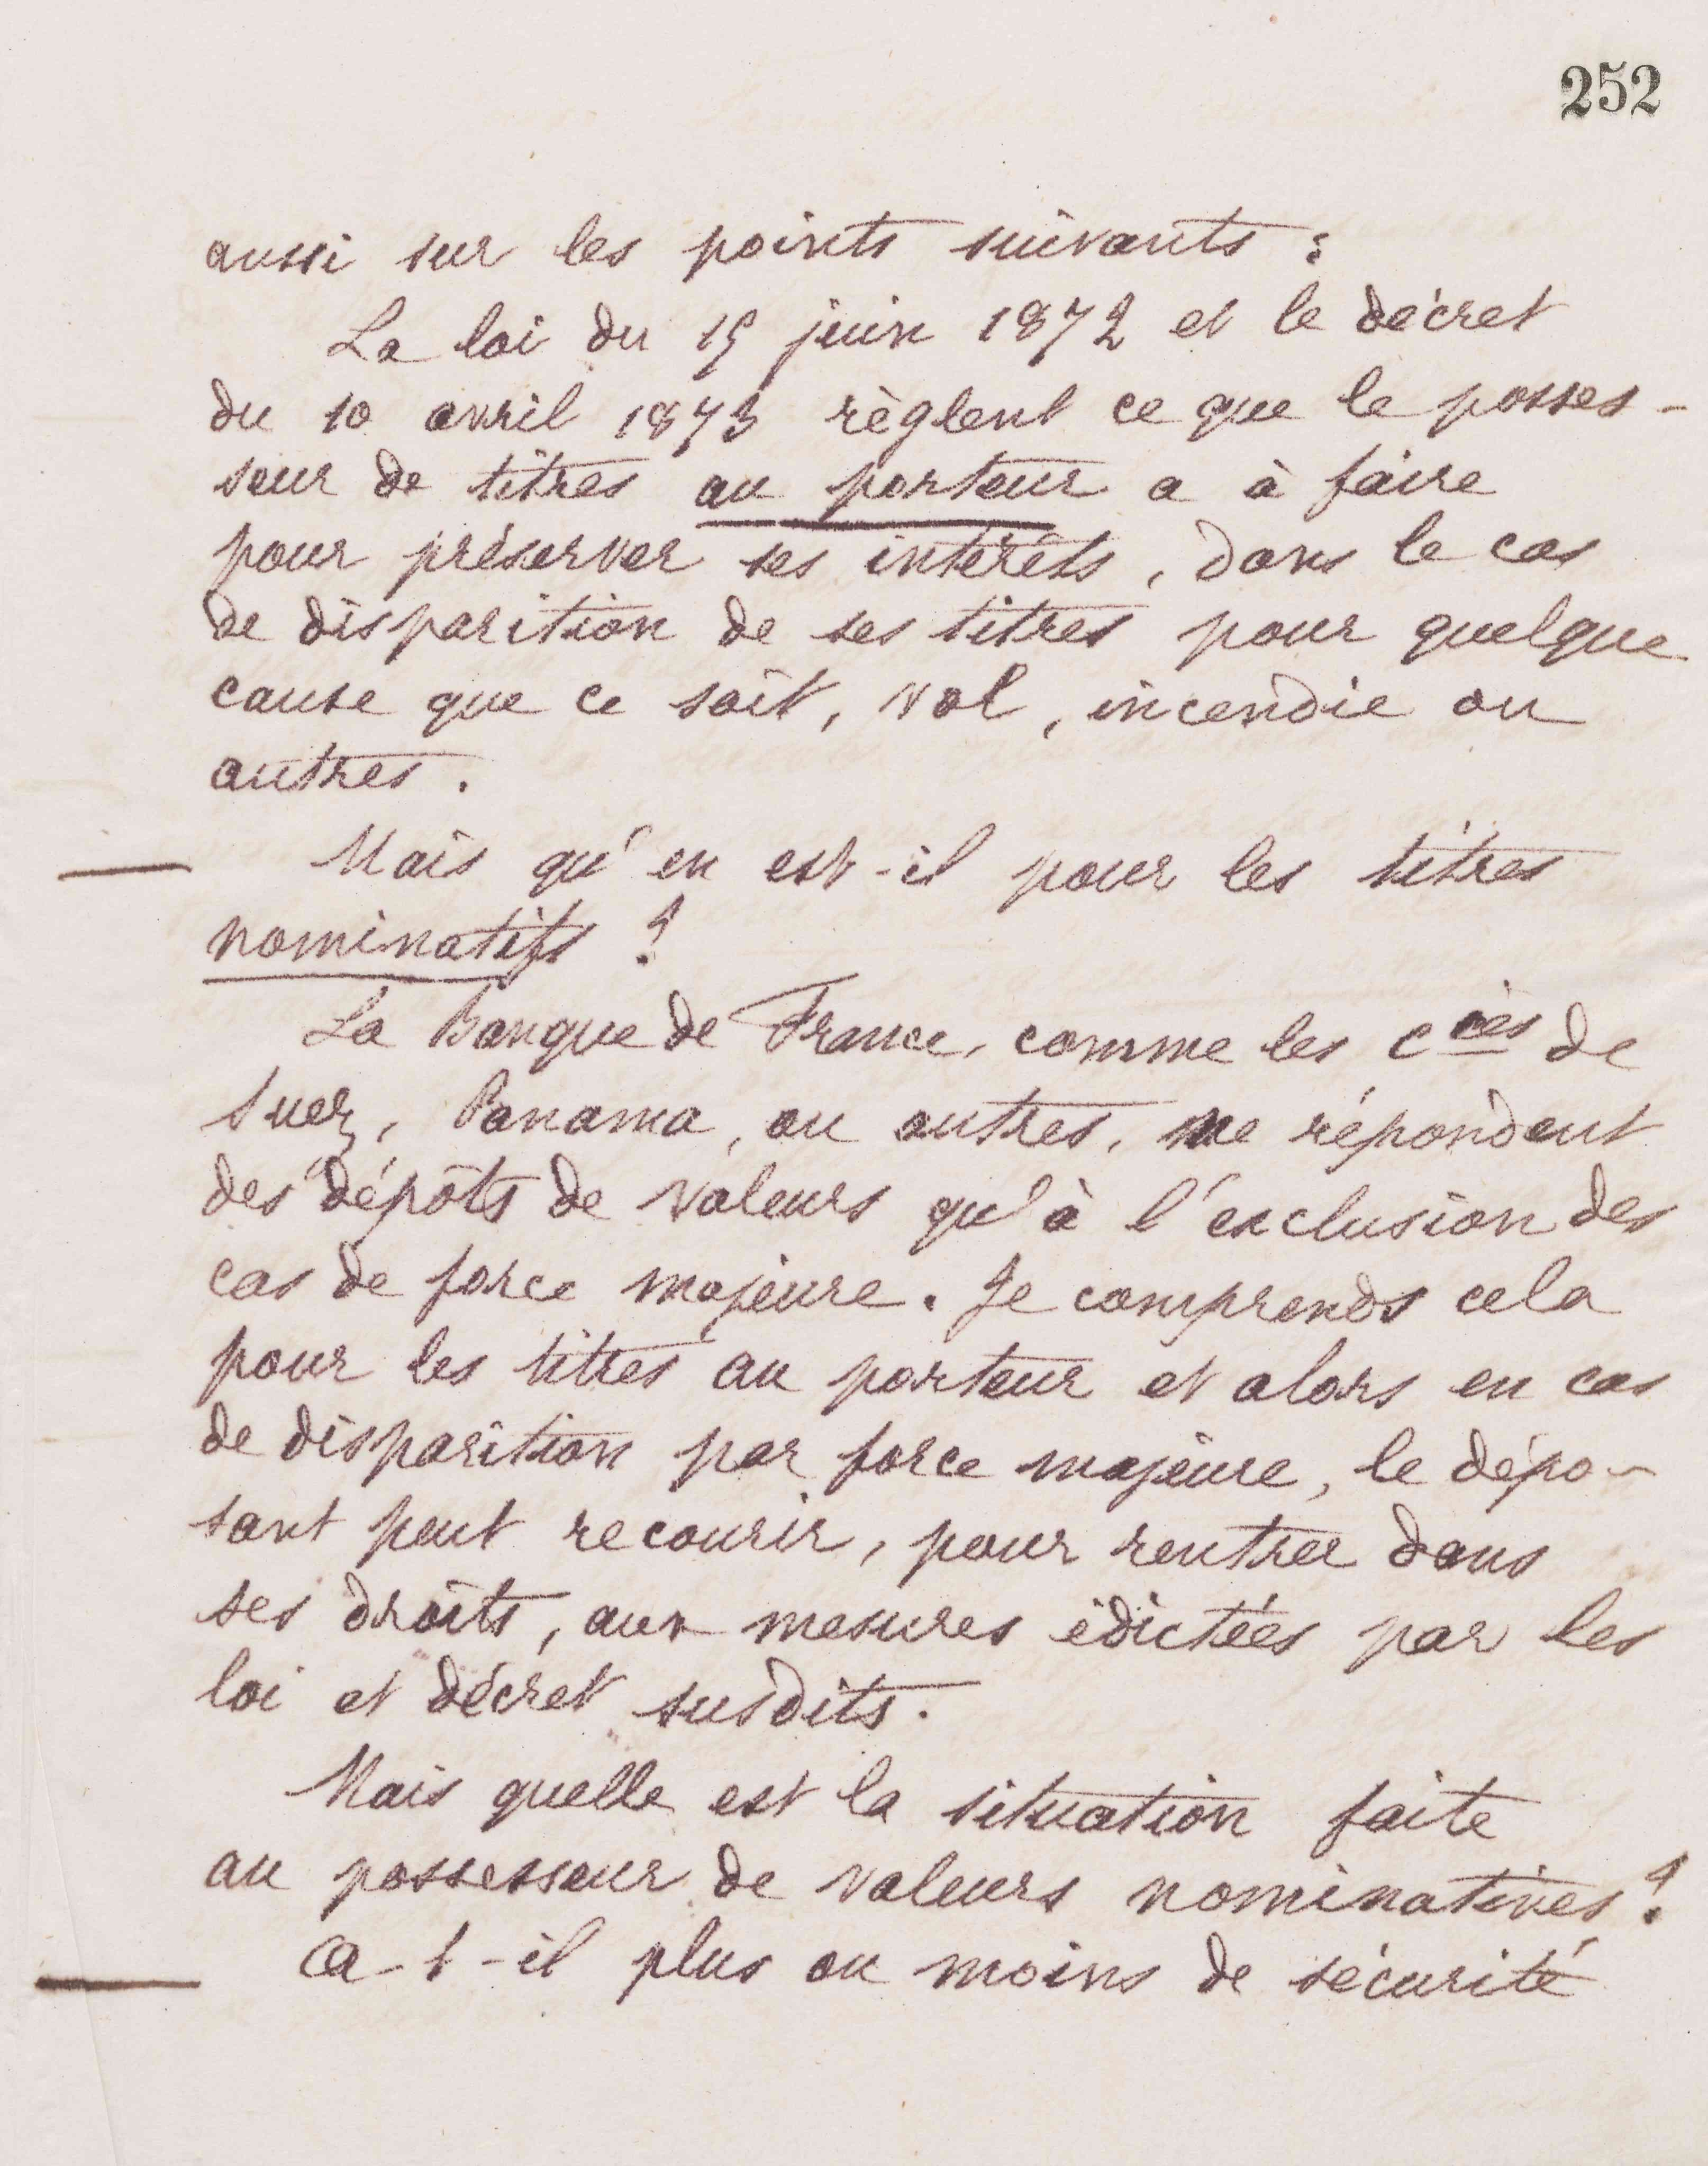 252
aussi sur les points suivants :
La loi du 15 juin 1872 et le décret
du 10 avril 1873 règlent ce que le posses-
seur de titres au porteur a à faire
pour préserver ses intérêts, dans le cas
de disparition de ses titres pour quelque
cause que ce soit, vol, incendie ou
autres.
Mais qu'en est-il pour les titres
nominatifs ?
La Banque de France, comme les Cies de
Suez, Panama, ou autres, ne répondent
des dépôts de valeurs qu'à l'exclusion des
cas de force majeure. Je comprends cela
pour les titres au porteur et alors en cas
de disparition par force majeure, le dépo-
sant peut recourir, pour rentrer dans
ses droits, aux mesures édictées par les
loi et décret susdits.
Mais quelle est la situation faite
au possesseur de valeurs nominatives ?
A-t-il plus ou moins de sécurité